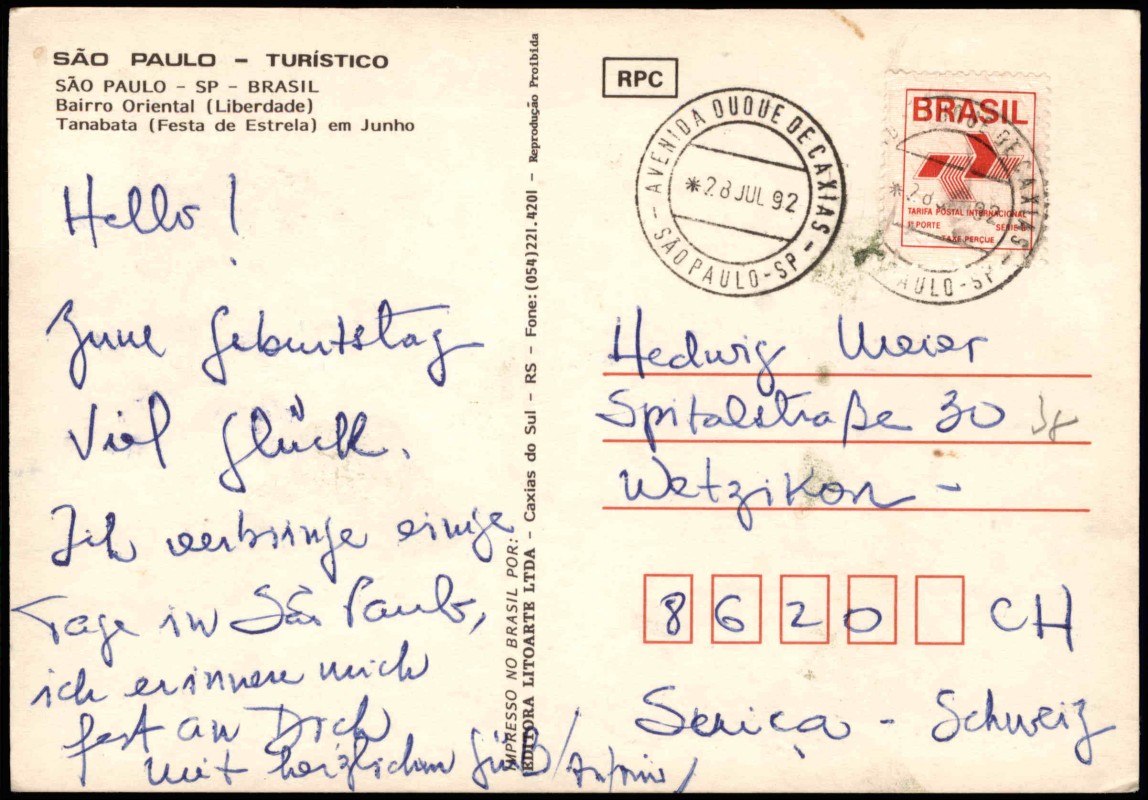 SÃO PAULO - TURÍSTICO
SÃO PAULO - SP - BRASIL
Bairro Oriental (Liberdade)
Tanabata (Festa de Estrela) em Junho
Hello !
Zum Geburtstag
Viel Glück.
Ich verbringe einige
Tage in São Paulo,
ich erinnere mich
fest an Dich
mit herzlichem Gruß /
IMPRESSO NO BRASIL POR:
EDITORA LITOARTE LTDA - Caxias do Sul - RS - Fone: (054) 221.4201 - Reprodução Proibida
RPC
AVENIDA DUQUE DE CAXIAS
*28 JUL 92
SÃO PAULO-SP
BRASIL
TARIFA POSTAL INTERNACIONAL
1º PORTE SÉRIE B
TAXE PERÇUE
DE CAXIAS
*28 92
PAULO-SP
Hedwig Meier
Spitalstraße 30
Wetzikon -
8620 CH
Seniça - Schweiz